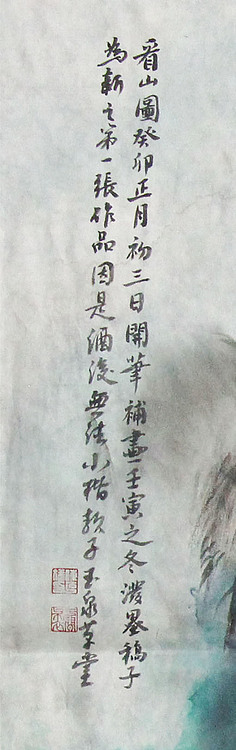 看山圖癸卯正月初三日開筆補畫壬寅之冬潑墨稿子
為新之第一張作品因是酒後無法小楷款子玉泉草堂